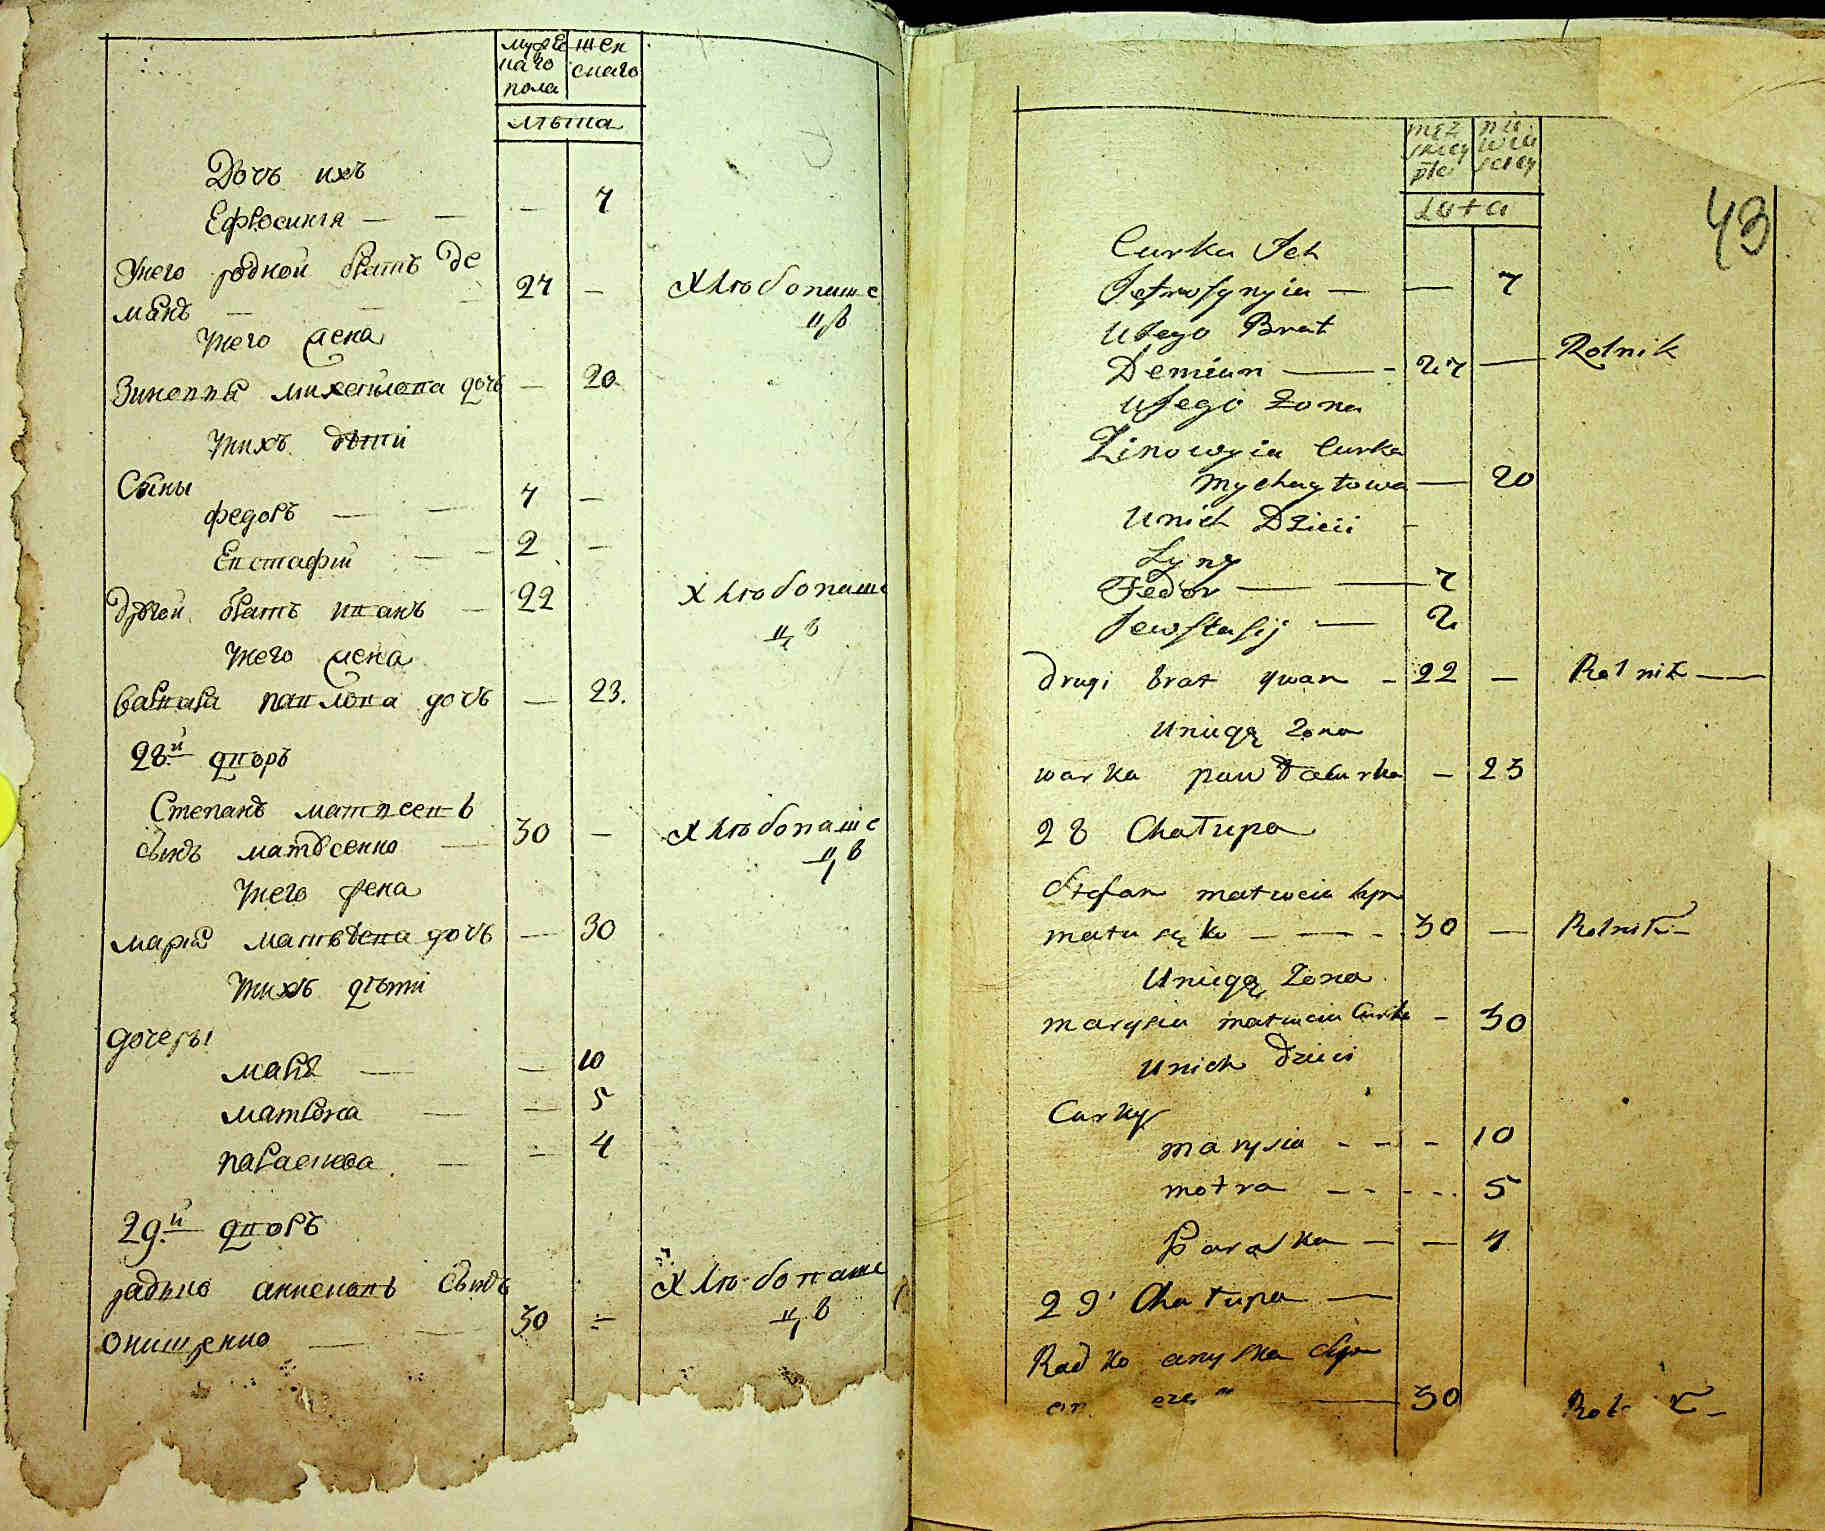 мужес
каго
пола
жен
скаго
лѣта
Дочь ихъ
Ефросинія — — — 7
Унего родной братъ Де
мянъ — — 27 — Хлѣбопаше
цъ
Унего жена
Зиновия михайлова дочь — 20
Унихъ дѣти
Сыны
Федоръ — — 7 —
Евстафий — — 2 —
Другой братъ иванъ — 22 Хлѣбопаше
цъ
Унего жена
Варвара павлова дочь — 23.
28.й дворъ
Степанъ матвеевъ
сынъ матвеенко — 30 — Хлѣбопаше
цъ
Унего жена
мария матвеева дочь — 30
Унихъ дѣти
дочеры
мария — — 10
матрона — — 5
параскева — — 4
29.й дворъ
радько сынъ Хлѣбопаше
онищенко — — 30 — цъ
43
męz
skiey
płci
nie
wie
sciey
Lata
Curka Ich
Jefrosynyia — — 7
Ujego Brat
Demian — - 27 — Rolnik
Ujego Zona
Zinowyia Curka
Mychayłowa — 20
Unich Dzieii -
Syny
Fedor — — 7
Jewstafij — 2
Drugi brat ywan - 22 — Rolnik —
Uniegą Zona
warka pawła Curka — 23
28 Chałupa
Stefan matweia syn
matusęko — - — - 30 — Rolnik —
Uniegą Zona
marysia matweia Curka - 30
Unich Dzieci
Curky
marysia - - - 10
motra - - - . . 5
Paraska — — 4
29' Chałupa —
Radko syn
— 30 —